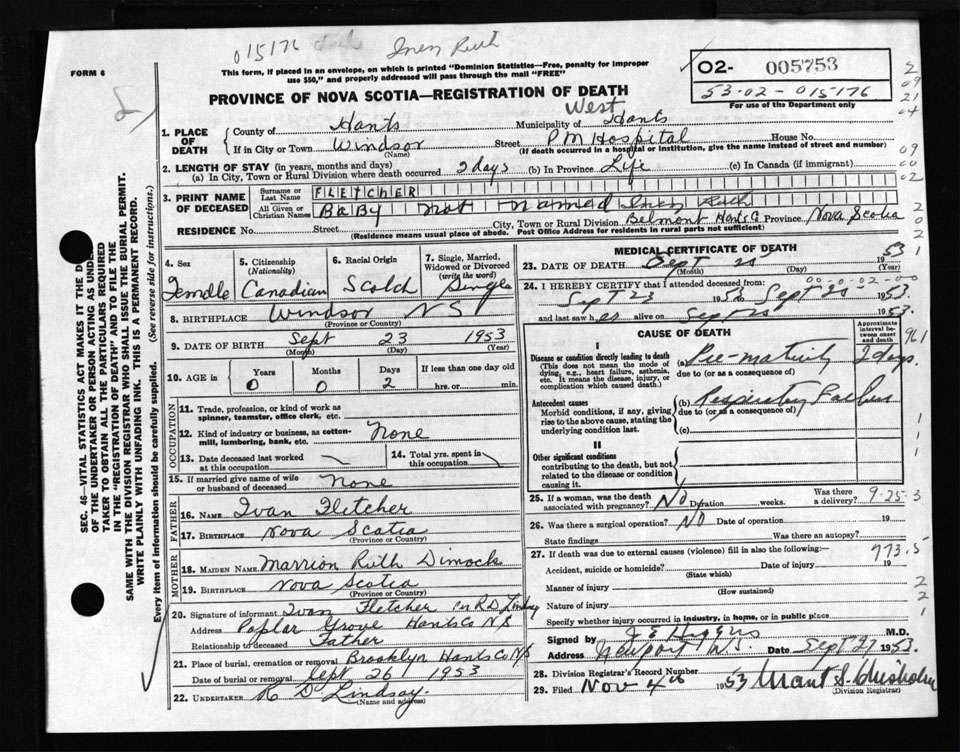 015176 Inez Ruth
FORM 6
This form, if placed in an envelope, on which is printed "Dominion Statistics—Free, penalty for improper
use $50," and properly addressed will pass through the mail "FREE"
PROVINCE OF NOVA SCOTIA—REGISTRATION OF DEATH
02- 005753
53-02-015176
For use of the Department only
West
1. PLACE OF DEATH
County of Hants Municipality of Hants
If in City or Town Windsor Street P M Hospital House No.
(Name) (If death occurred in a hospital or institution, give the name instead of street and number)
2. LENGTH OF STAY (in years, months and days)
(a) In City, Town or Rural Division where death occurred 2 days (b) In Province Life (c) In Canada (if immigrant)
3. PRINT NAME OF DECEASED
Surname or Last Name FLETCHER
All Given or Christian Names BaBy not named Inez Ruth
RESIDENCE No. Street City, Town or Rural Division Belmont Hants Co Province Nova Scotia
(Residence means usual place of abode. Post Office Address for residents in rural parts not sufficient)
4. Sex Female
5. Citizenship (Nationality) Canadian
6. Racial Origin Scotch
7. Single, Married, Widowed or Divorced (write the word) Single
8. BIRTHPLACE Windsor N S
(Province or Country)
9. DATE OF BIRTH Sept 23 1953
(Month) (Day) (Year)
10. AGE in Years 0 Months 0 Days 2 If less than one day old hrs. or min.
OCCUPATION
11. Trade, profession, or kind of work as spinner, teamster, office clerk, etc.
12. Kind of industry or business, as cotton-mill, lumbering, bank, etc. None
13. Date deceased last worked at this occupation
14. Total yrs. spent in this occupation
15. If married give name of wife or husband of deceased None
FATHER
16. NAME Ivan Fletcher
17. BIRTHPLACE Nova Scotia
(Province or Country)
MOTHER
18. MAIDEN NAME Marrion Ruth Dimock
19. BIRTHPLACE Nova Scotia
(Province or Country)
20. Signature of informant Ivan Fletcher Per R D Lindsay
Address Poplar Grove Hants Co N S
Relationship to deceased Father
21. Place of burial, cremation or removal Brooklyn Hants Co N S
Date of burial or removal Sept 26 1953
22. UNDERTAKER R D Lindsay
(Name and address)
MEDICAL CERTIFICATE OF DEATH
23. DATE OF DEATH Sept 25 1953
(Month) (Day) (Year)
24. I HEREBY CERTIFY that I attended deceased from:
Sept 23 1953 Sept 25 1953
and last saw her alive on Sept 25 1953.
CAUSE OF DEATH
Approximate interval between onset and death
I
Disease or condition directly leading to death
(This does not mean the mode of dying, e.g., heart failure, asthenia, etc. It means the disease, injury, or complication which caused death.)
(a) Pre-maturity 2 days
due to (or as a consequence of)
Antecedent causes
Morbid conditions, if any, giving rise to the above cause, stating the underlying condition last.
(b) Respiratory Failure
due to (or as a consequence of)
(c)
II
Other significant conditions
contributing to the death, but not related to the disease or condition causing it.
25. If a woman, was the death associated with pregnancy? No Duration weeks. Was there a delivery? 9-25-3
26. Was there a surgical operation? No Date of operation 19
State findings Was there an autopsy?
27. If death was due to external causes (violence) fill in also the following: 773.5
Accident, suicide or homicide? Date of injury 19
(State which)
Manner of injury
(How sustained)
Nature of injury
Specify whether injury occurred in industry, in home, or in public place
Signed by J E Higgins M.D.
Address Newport N.S. Date Sept 27 1953.
28. Division Registrar's Record Number
29. Filed Nov 4th 1953 Grant S. Chisholm
(Division Registrar)
SEC. 46—VITAL STATISTICS ACT MAKES IT THE D
OF THE UNDERTAKER OR PERSON ACTING AS UNDER
TAKER TO OBTAIN ALL THE PARTICULARS REQUIRED
IN THE "REGISTRATION OF DEATH" AND TO FILE THE
SAME WITH THE DIVISION REGISTRAR WHO SHALL ISSUE THE BURIAL PERMIT.
WRITE PLAINLY WITH UNFADING INK. THIS IS A PERMANENT RECORD.
Every item of information should be carefully supplied. (See reverse side for instructions.)